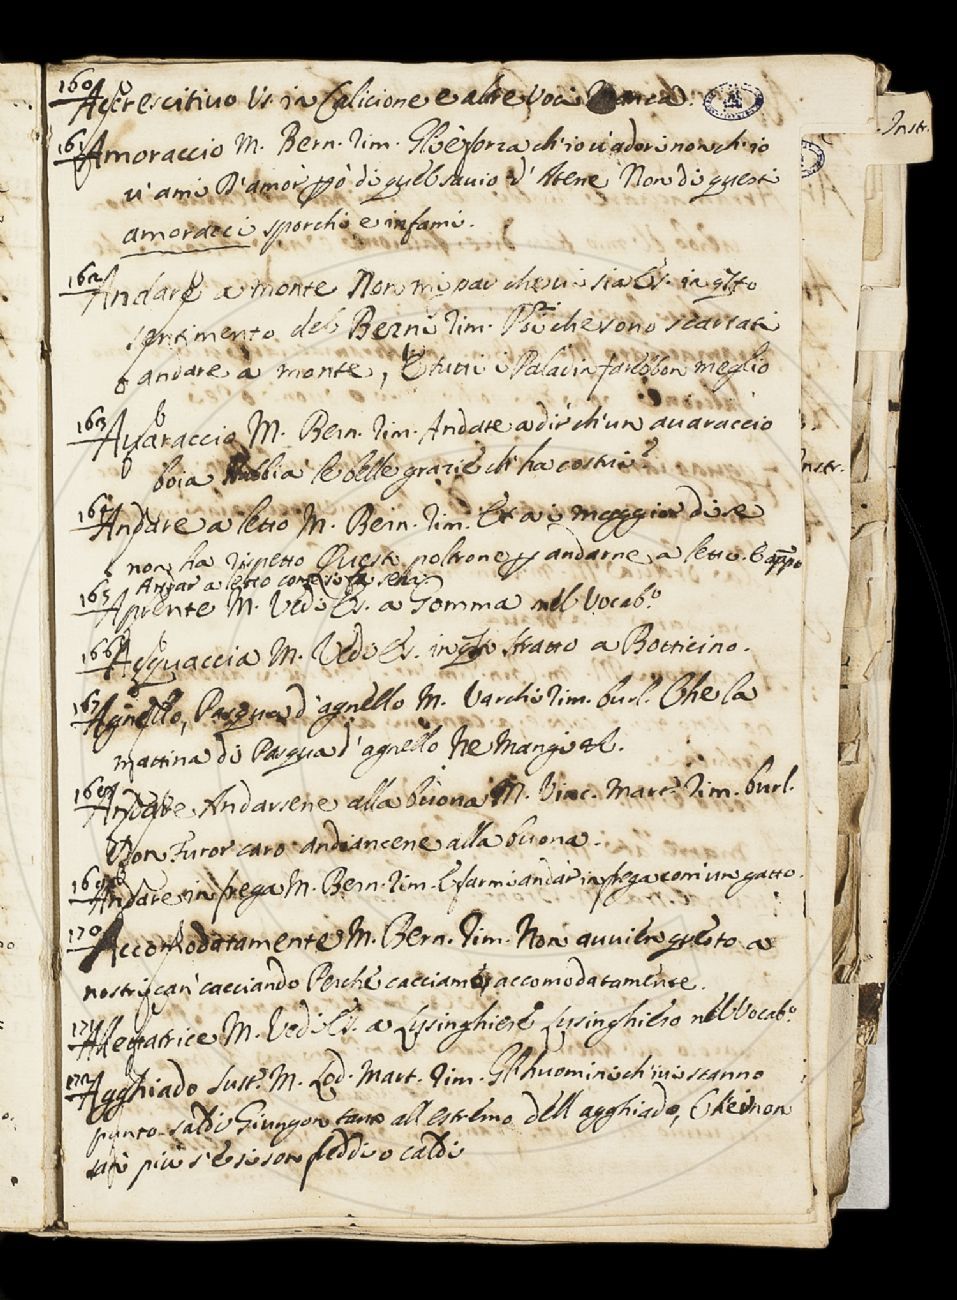 160
Accrescitivo V. in Calicione e altre Voci Manca.
161 Amoraccio M. Bern. rim. Gli è forza ch'io v'adori non ch'io
v'ami D'amor però di quel savio d'Atene Non di questi
amoracci sporchi e infami.
162 Andare a monte Non mi par che vi sia Es. in questo
sentimento del Berni rim. che sono scartati
andare a monte, E tutti i Paladin farebbon meglio
163 Avaraccio M. Bern. rim. Andate a dir ch'un avaraccio
boia Habbia le belle grazie ch'ha costui
164 Andare a letto M. Bern. rim. Et a i maggior di se
non ha rispetto Questi poltrone per andarne a letto. E appo
Andar a letto come si fa sera
165 Aprente M. Vedi Es. a Gomma nel Vocab.o
166 Acquaccia M. Vedi Es. in questo stratto a Botticino.
167 Agnello, Pasqua d'agnello M. Varchi rim. burl. Che la
mattina di Pasqua d'agnello Ne mangi
168 Andare Andarsene alla buona M. Vinc. Mart. rim. burl.
Hor Furor caro andiancene alla buona.
169 Andare in frega M. Bern. rim. E farmi andar in frega com'un gatto.
170 Accomodatamente M. Bern. rim. Non avvien questo a
nostri can cacciando Perchè cacciam accomodatamente.
171 Allettatrice M. Vedi Es. a Lusinghiere Lusinghiero nel Vocab.o
172 Agghiado Sust. M. Lod. Mart. rim. Gl'huomini ch'ivi stanno
punto saldi Giungon tanto all'estremo dell'agghiado, Ch'ei non
san più s'e' si son freddi o caldi
Instr.
Instr.